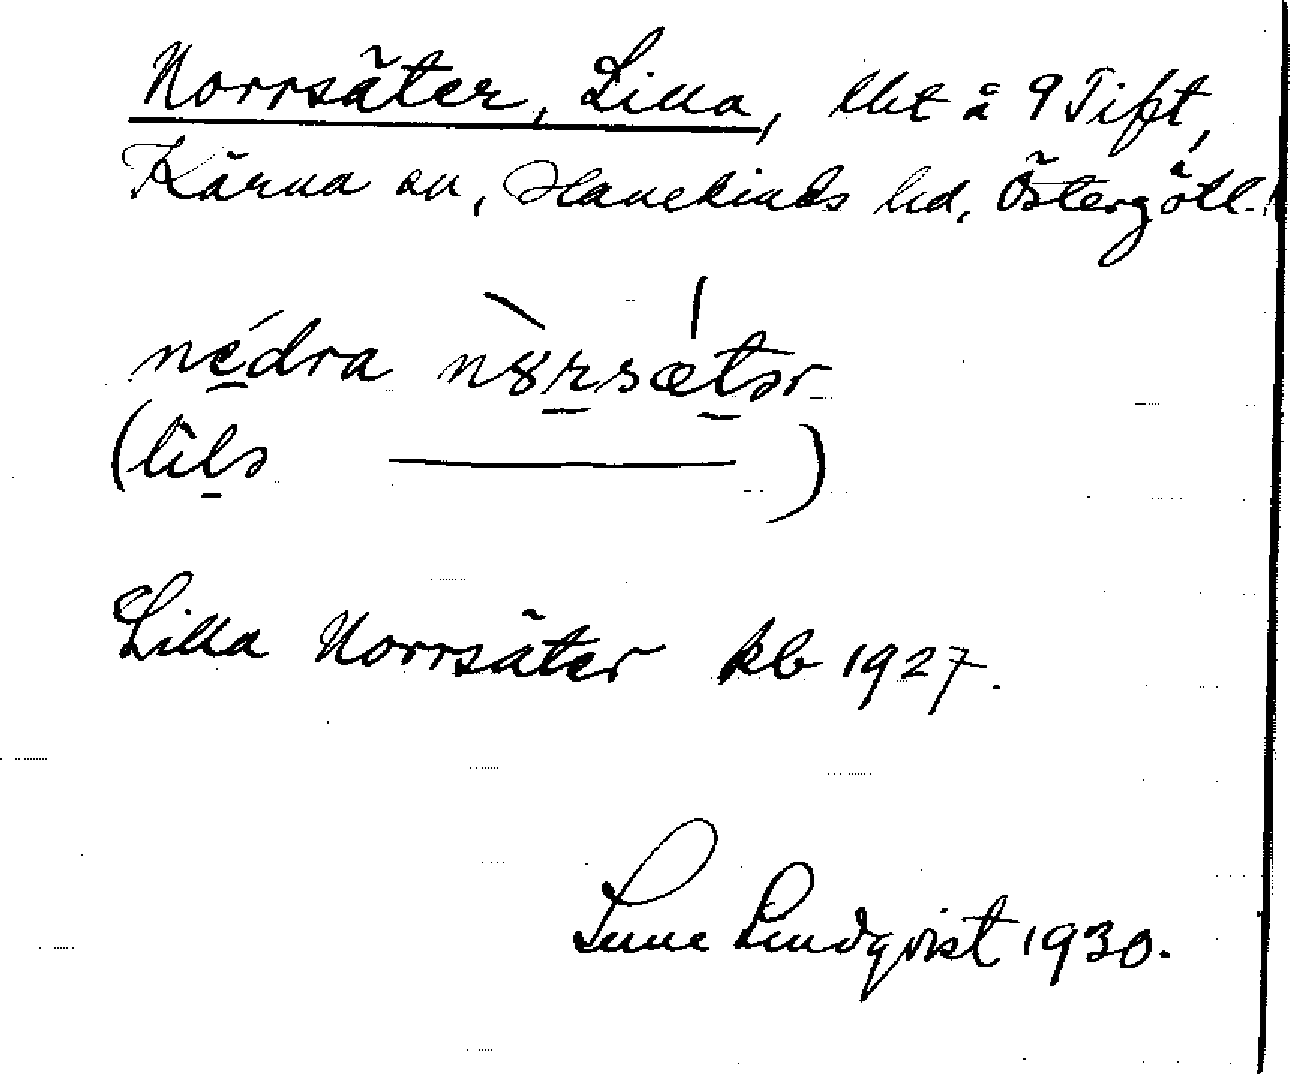 Norrsäter, Lilla, lht å 9 Tift,
Kärna sn, Hanekinds hd, Östergötl.
nédra nȣrsætər
(lilə ——— )
Lilla Norrsäter kb 1927.
Sune Lindqvist 1930.